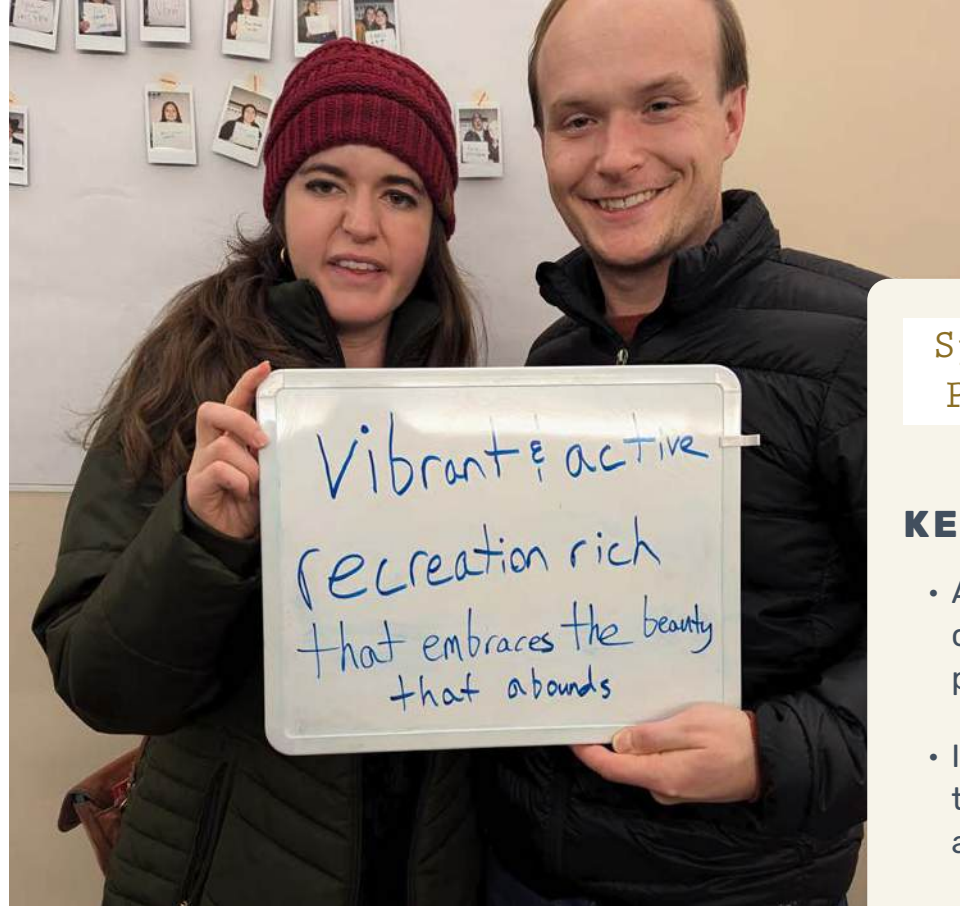 Vibrant & active
recreation rich
that embraces the beauty
that abounds
KE